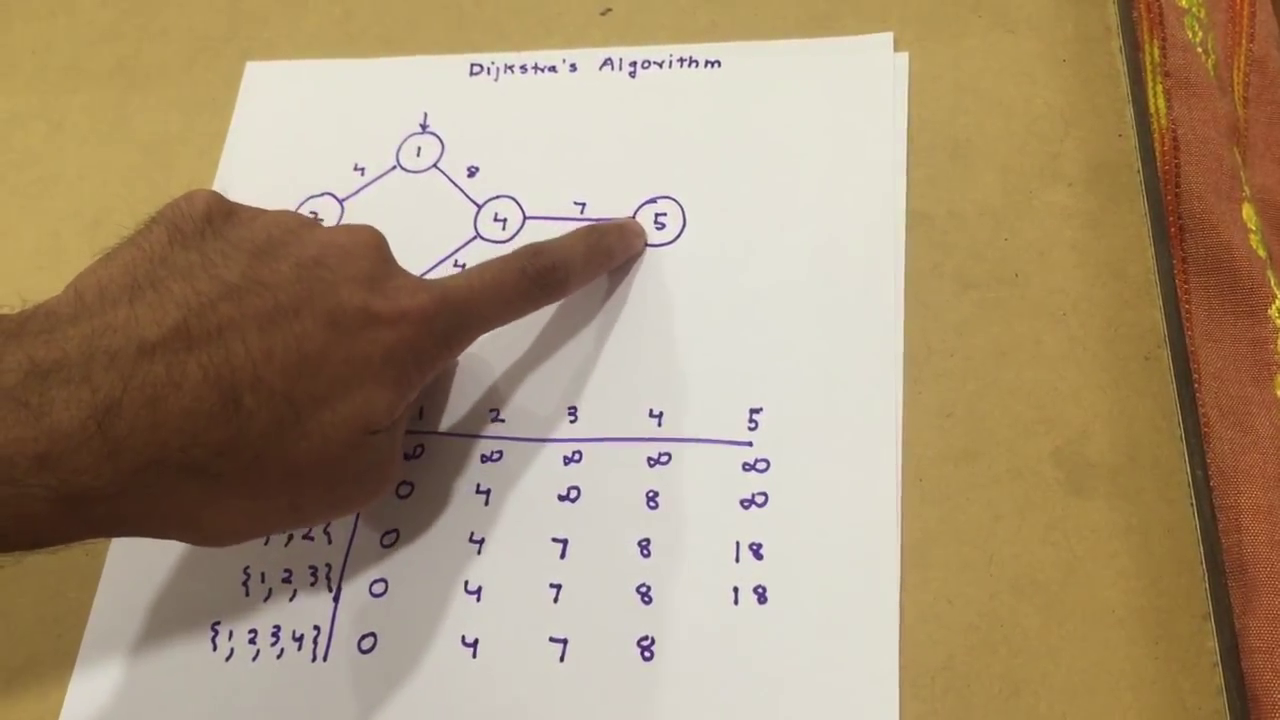 Dijkstra's Algorithm
1
4 8
7
4 5
4
1 2 3 4 5
∞ ∞ ∞ ∞ ∞
0 4 ∞ 8 ∞
,2} 0 4 7 8 18
{1,2,3} 0 4 7 8 18
{1,2,3,4} 0 4 7 8